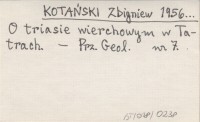 KOTAŃSKI Zbigniew 1956...
O triasie wierchowym w Ta-
trach. — Prz. Geol. nr 7.